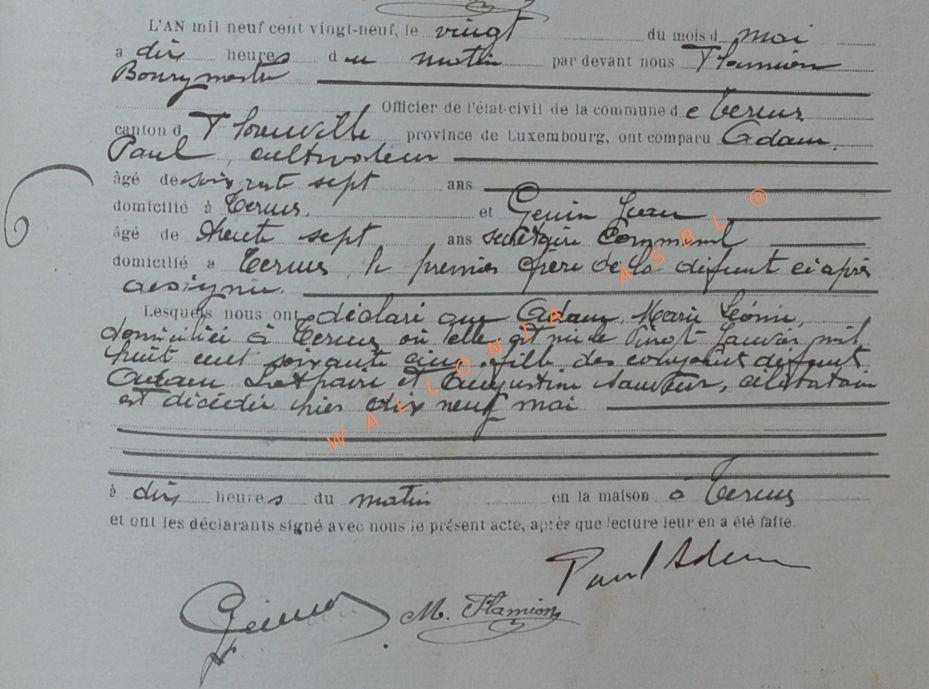 L'AN mil neuf cent vingt-neuf, le vingt du mois d mai
a dix heures du matin par devant nous Flamion
Bourgmestre
Officier de l'état-civil de la commune de Termes
canton d Florenville province de Luxembourg, ont comparu Adam,
Paul, cultivateur
âgé de soixante sept ans
domicilié à Termes. et Genin Jean
âgé de trente sept ans secrétaire communal
domicilié a Termes, le premier frère de la défunte ci après
désignée.
Lesquels nous ont déclaré que Adam, Marie Léonie,
domiciliée à Termes où elle est née le vingt Janvier mil
huit cent soixante cinq, fille des conjoints défunts
Adam et Augustine, célibataire
est décédée hier dix neuf mai
à dix heures du matin en la maison à Termes
et ont les déclarants signé avec nous le présent acte, après que lecture leur en a été faite.
Paul Adam
Genin M. Flamion
WALLONIA ASBL ®